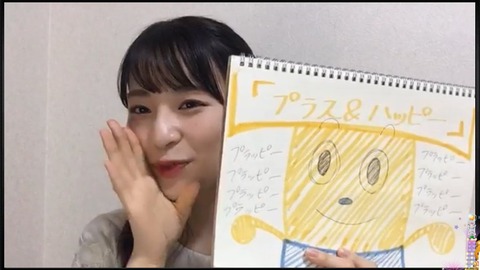 「プラス&ハッピー」
プラッピー
プラッピー
プラッピー
プラッピー
プラッピー
プラッピー
プラッピー
プラッピー